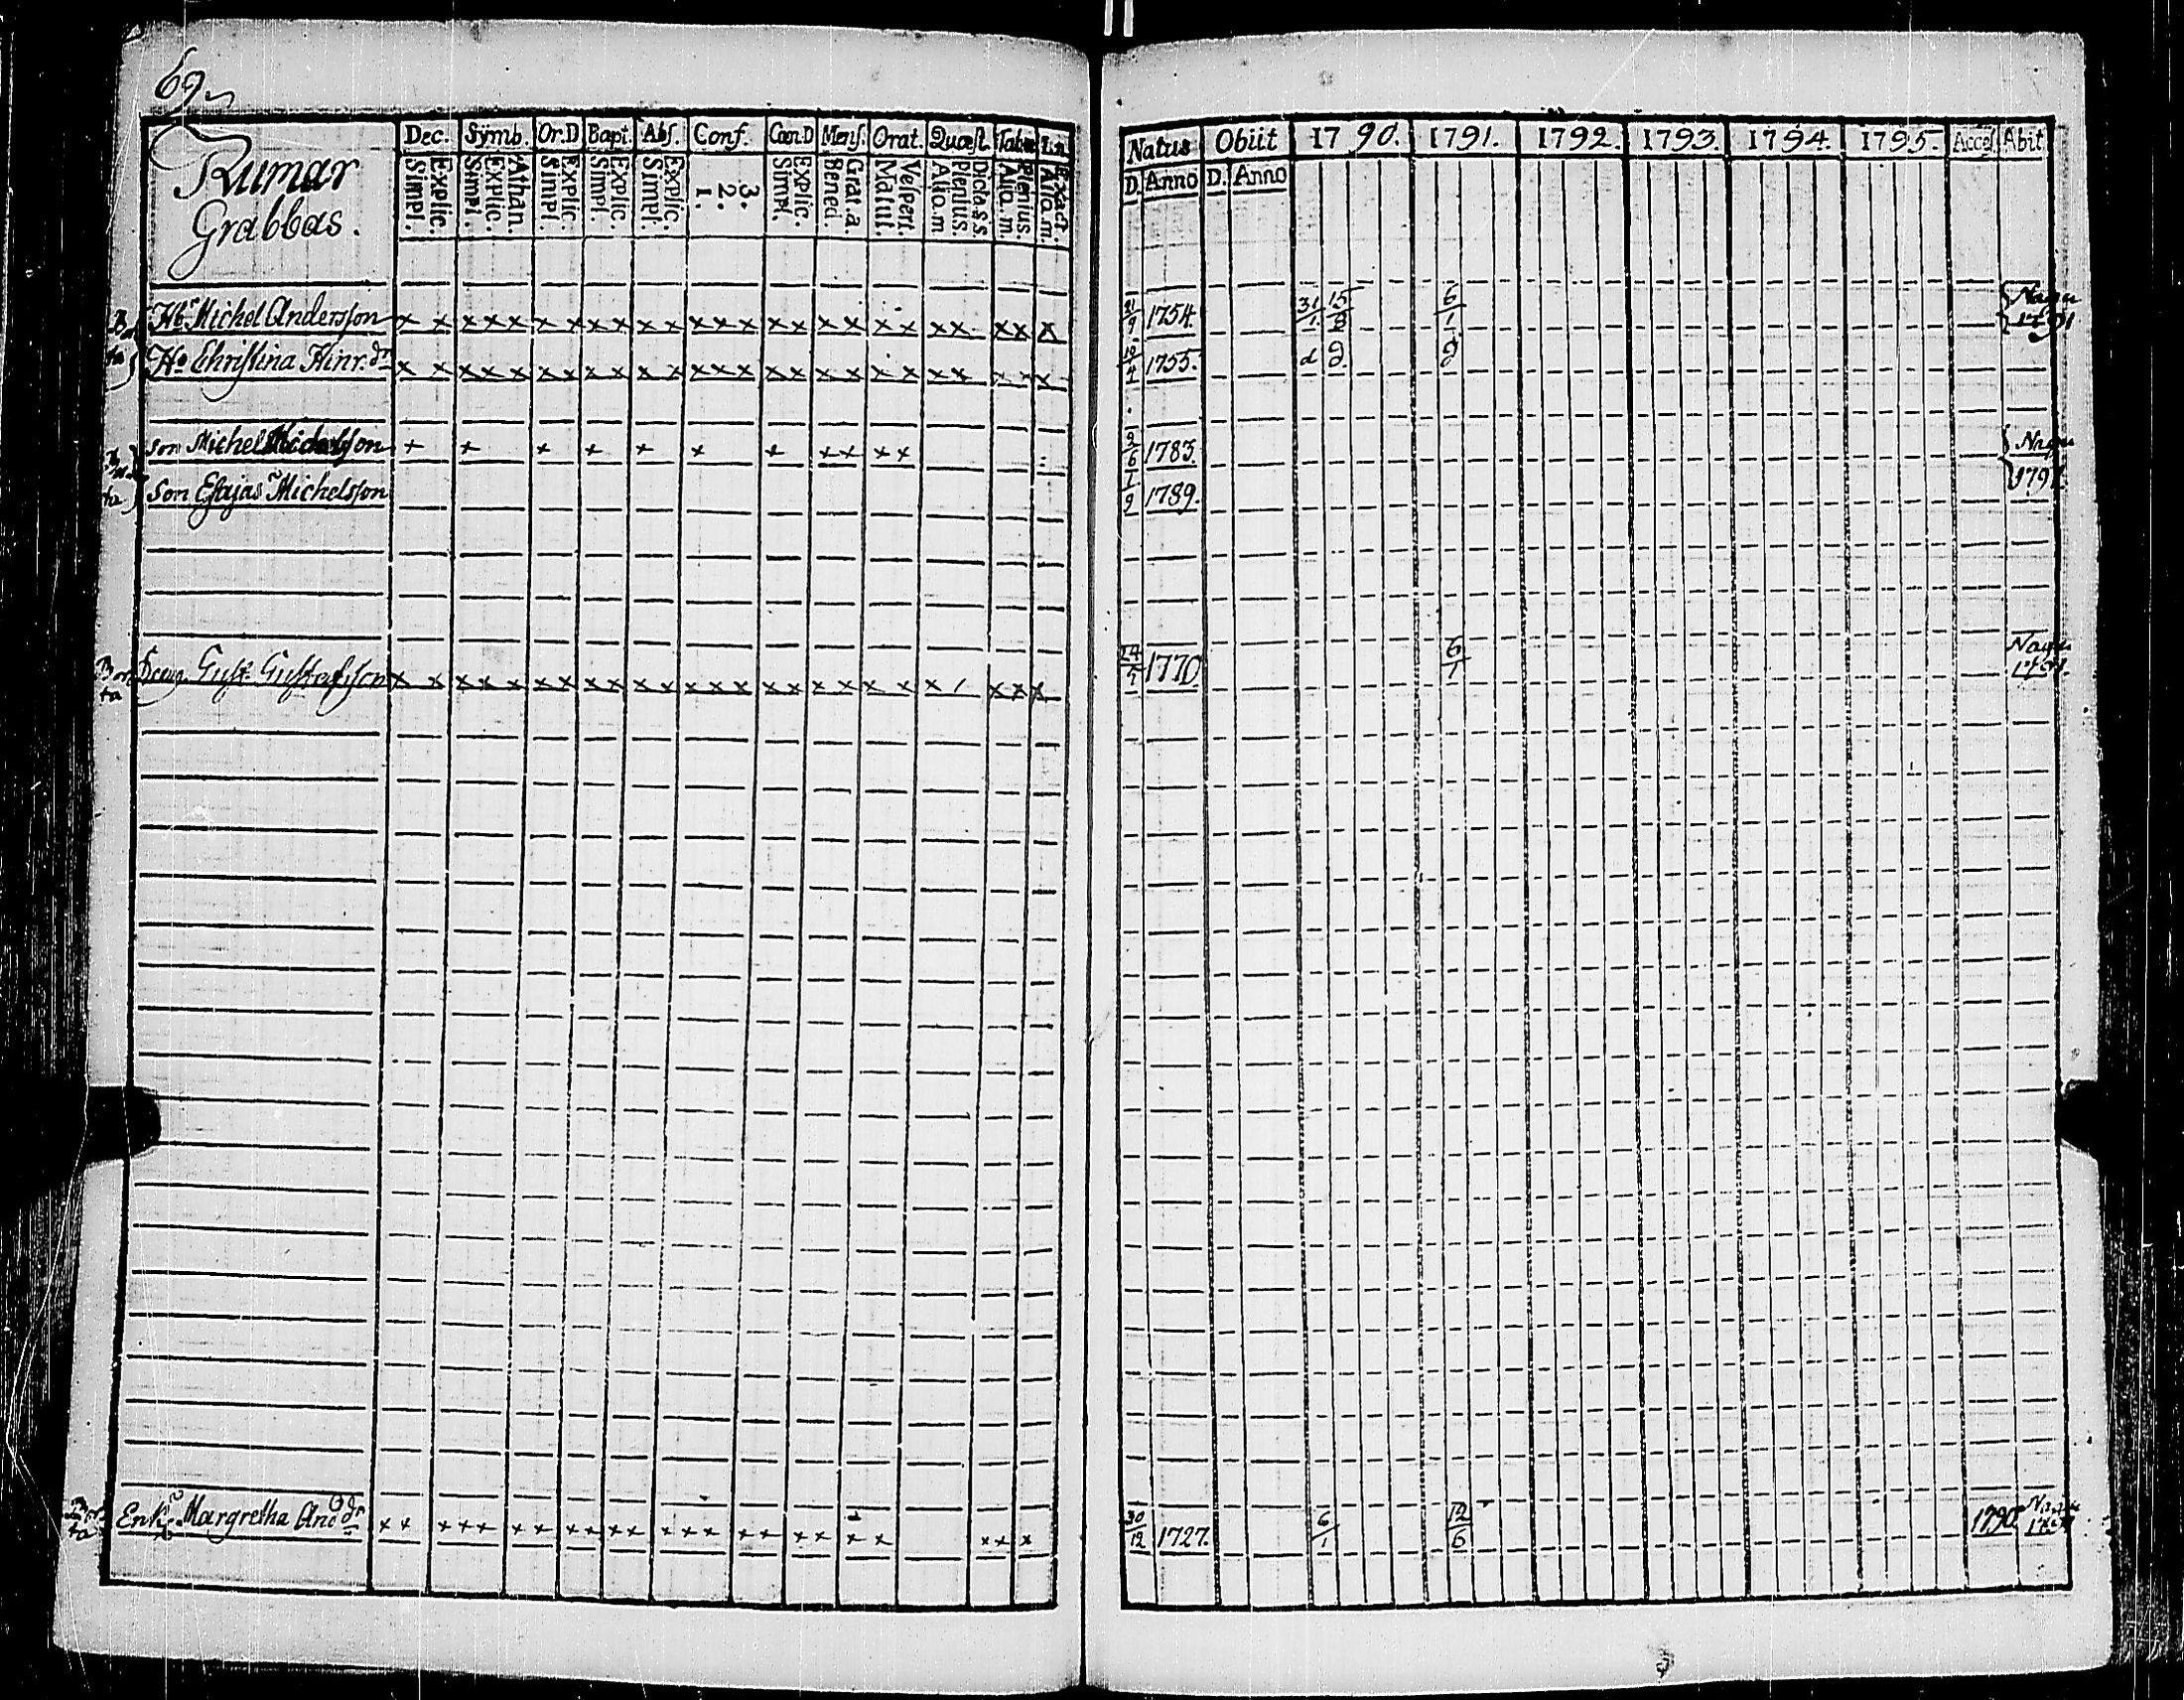 69
Rumar
Grabbas.
Dec. Symb. Or.D Bapt. Abs. Conf. Cœn.D Mens. Orat. Quæst. Tabu
Simpl. Explic. Simpl. Explic. Athan. Simpl. Explic. Simpl. Explic. Simpl. Explic. 1. 2. 3. Simpl. Explic. Bened. Grat.a Matut. Vespert. Aliq.m Plenius. Dicta s.s. Aliq.m Plenius. Aliq.m. Exact.
Natus Obiit 1790. 1791. 1792. 1793. 1794. 1795. Acces Abit
D. Anno D. Anno
Hb. Michel Andersson x x x x x x x x x x x x x x x x x x x x x x x x x 21/9 1754. 31/1 15/8 6/1 Nagu 1791
Hu Christina Hinr.dr x x x x x x x x x x x x x x x x x x x x x x x x 10/4 1755. d d d
son Michel Michelsson + + x x x x x x x x x 2/6 1783. Nagu 1791.
Son Esajas Michelsson 1/9 1789.
Bor ta Dreng Gust. Gustafsson x x x x x x x x x x x x x x x x x x x x x / x x x 24/5 1770 6/1 Nagu 1791.
Bor ta Enk. Margretha And.dr x x x x x x x x x x x x x x x x x x x x x x x 30/12 1727. 6/1 12/6 1790 Nagu